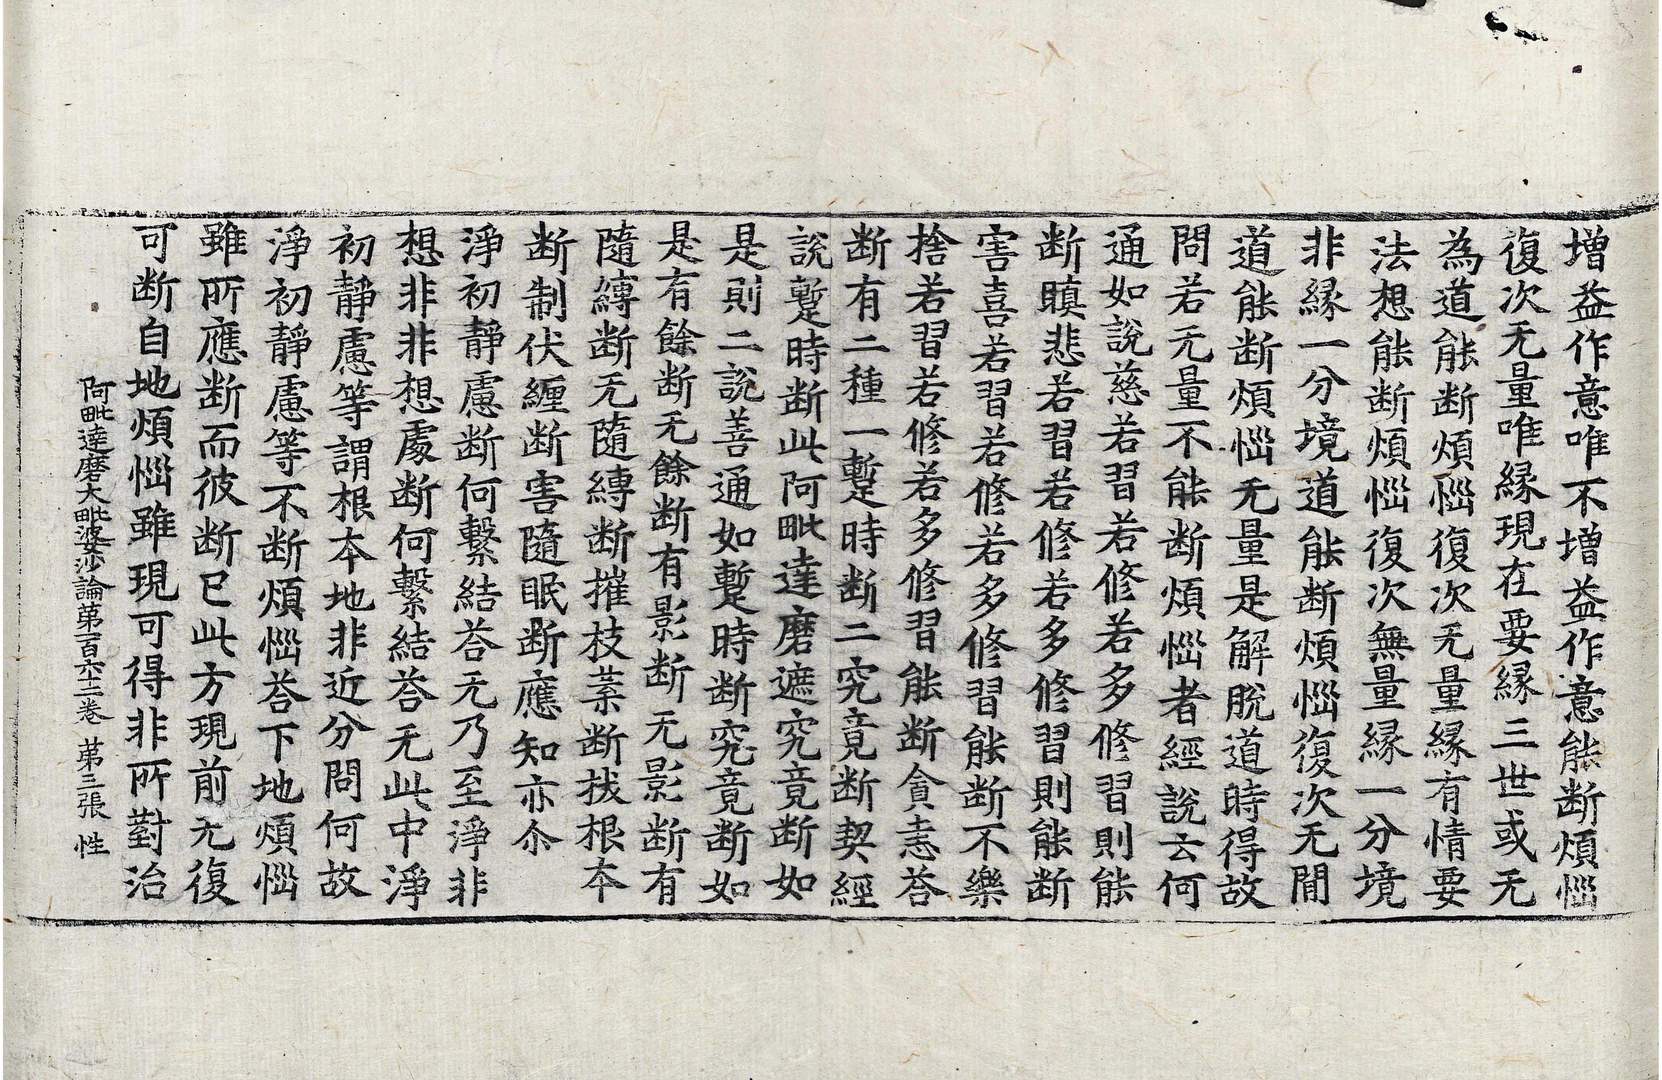 增益作意唯不增益作意能断煩惱
復次无量唯縁現在要縁三世或无
為道能断煩惱復次无量縁有情要
法想能断煩惱復次無量縁一分境
非縁一分境道能断煩惱復次无間
道能断煩惱无量是解脫道時得故
問若无量不能断煩惱者經說云何
通如說慈若習若修若多修習則能
断瞋悲若習若修若多修習則能断
害喜若習若修若多修習能断不樂
捨若習若修若多修習能断貪恚荅
断有二種一蹔時断二究竟断契經
說蹔時断此阿毗達磨遮究竟断如
是則二說善通如蹔時断究竟断如
是有餘断无餘断有影断无影断有
隨縛断无隨縛断摧枝葉断拔根本
断制伏纒断害隨眠断應知亦尒
淨初靜慮断何繫結荅无乃至淨非
想非非想處断何繫結荅无此中淨
初靜慮等謂根本地非近分問何故
淨初靜慮等不断煩惱荅下地煩惱
雖所應断而彼断已此方現前无復
可断自地煩惱雖現可得非所對治
阿毗達磨大毗婆沙論第一百六十二卷 第三張 性